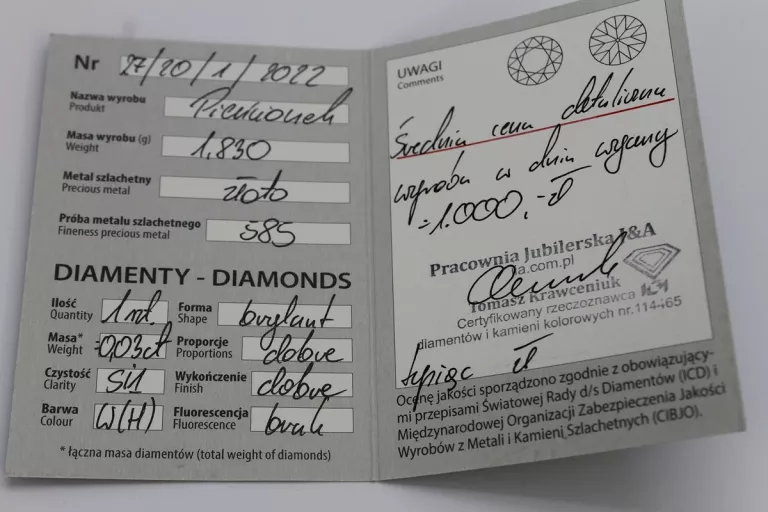 Nr 27/20/1/2022
Nazwa wyrobu Pierścionek
Produkt
Masa wyrobu (g) 1,830
Weight
Metal szlachetny złoto
Precious metal
Próba metalu szlachetnego 585
Fineness precious metal
DIAMENTY - DIAMONDS
Ilość 1 szt. Forma brylant
Quantity Shape
Masa* =0,03ct Proporcje dobre
Weight Proportions
Czystość SI1 Wykończenie dobre
Clarity Finish
Barwa W(H) Fluorescencja brak
Colour Fluorescence
* łączna masa diamentów (total weight of diamonds)
UWAGI
Comments
Średnia cena detaliczna
wyrobu w dniu wyceny
=1.000,-zł
Pracownia Jubilerska &A
a.com.pl
Tomasz Krawceniuk
Certyfikowany rzeczoznawca
diamentów i kamieni kolorowych nr.114465
tysiąc zł
Ocenę jakości sporządzono zgodnie z obowiązujący-
mi przepisami Światowej Rady d/s Diamentów (ICD) i
Międzynarodowej Organizacji Zabezpieczenia Jakości
Wyrobów z Metali i Kamieni Szlachetnych (CIBJO).